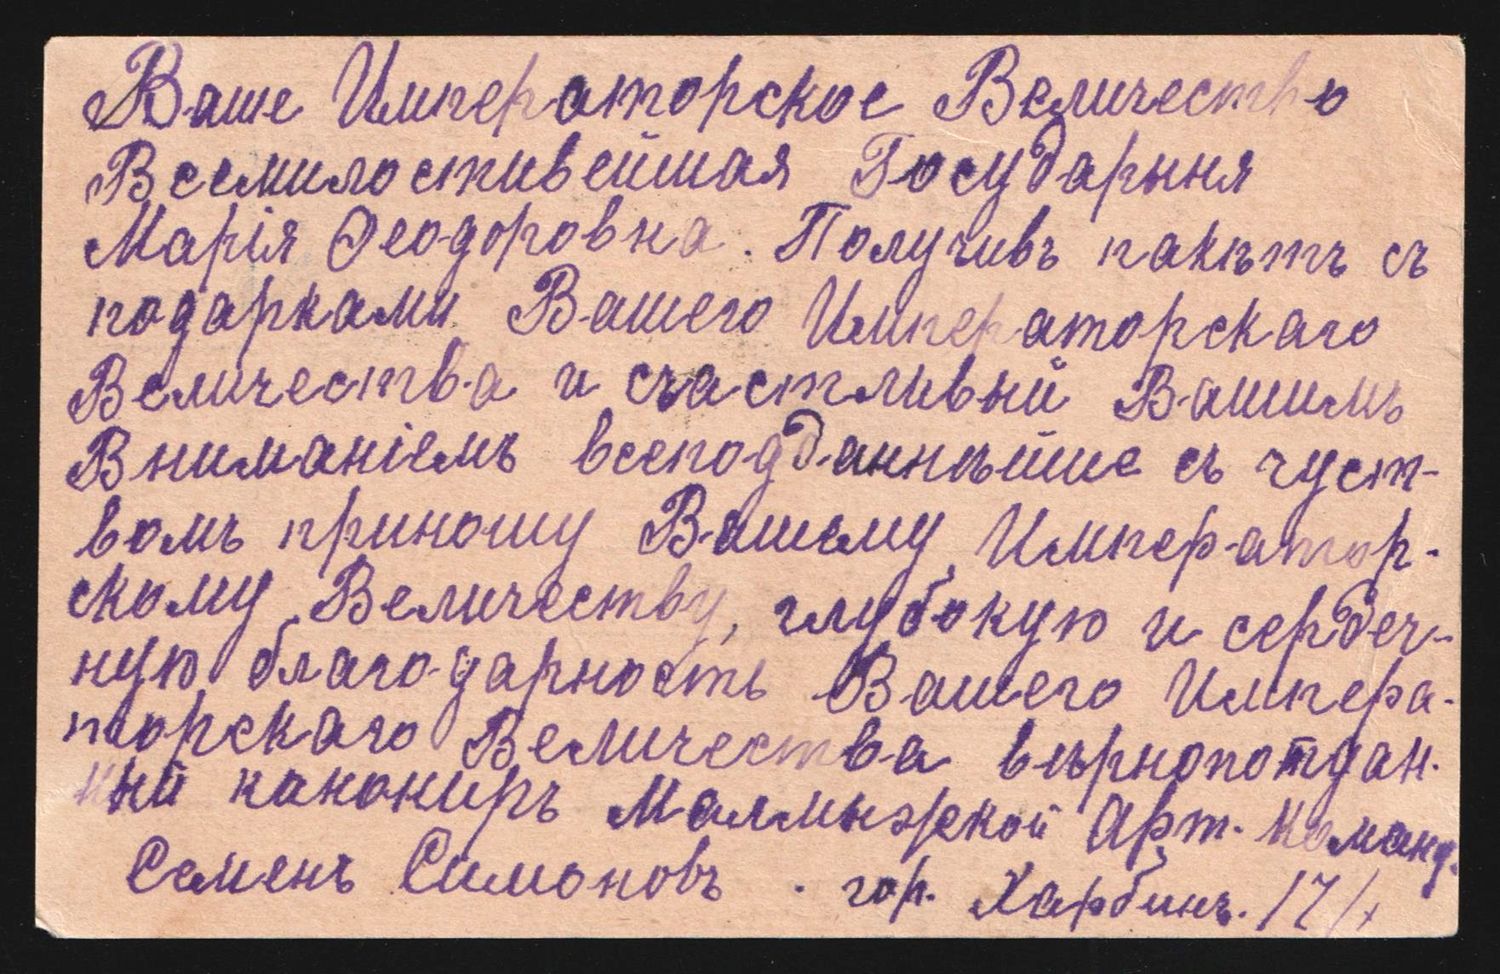 Ваше Императорское Величество
Всемилостивейшая Государыня
Марія Ѳеодоровна. Получивъ пакѣтъ съ
подарками Вашего Императорскаго
Величества и счастливый Вашимъ
Вниманіемъ всеподданнѣйше съ чуст-
вомъ приношу Вашему Император-
скому Величеству, глубокую и сердеч-
ную благодарность Вашего Импера-
торскаго Величества вѣрнопотдан-
ный канониръ Малмыжской Арт. Команд.
Семенъ Симоновъ. гор. Харбинъ. 17/х